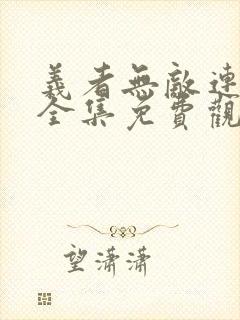 義者無敵連
全集免費觀
望瀟瀟